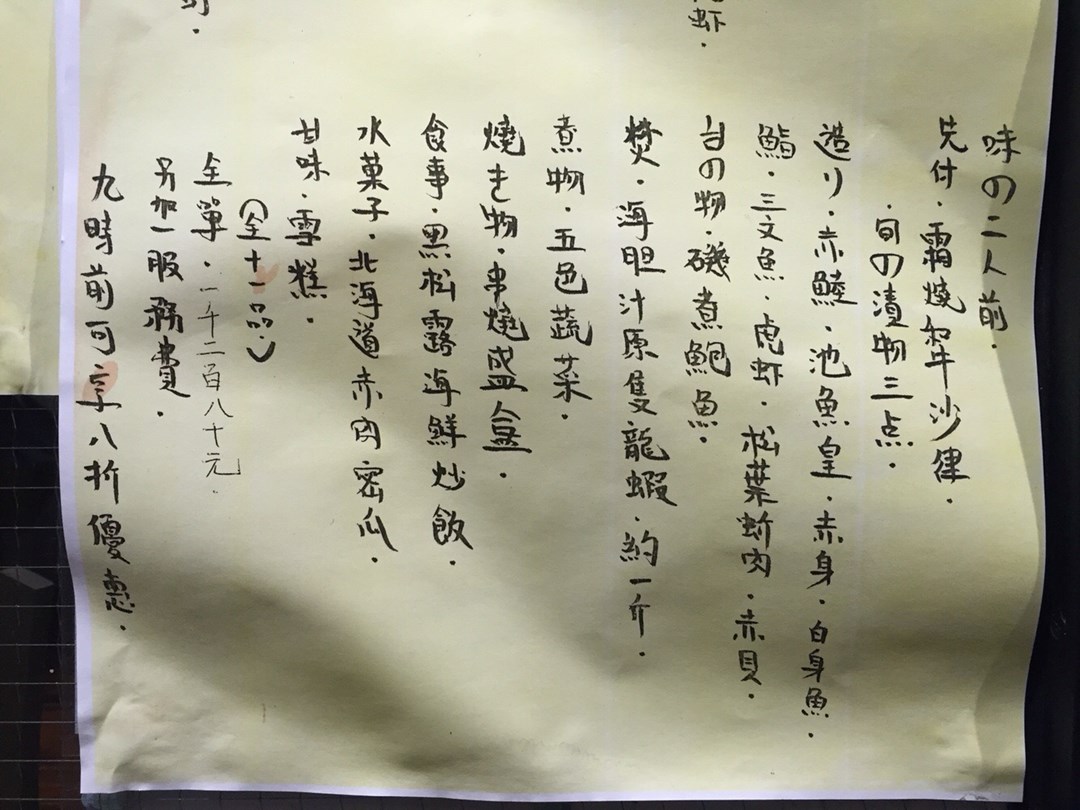 味の二人前.
先付.霜燒和牛沙律.
.旬の漬物三点.
造り.赤鯥.池魚皇.赤身.白身魚.
鮨.三文魚.虎虾.松葉蚧肉.赤貝.
台の物.磯煮鮑魚.
焚.海胆汁原隻龍蝦.約一斤.
煮物.五色蔬菜.
燒き物.串燒盛盒.
食事.黑松露海鮮炒飯.
水菓子.北海道赤肉密瓜.
甘味.雪糕.
(全十一品.)
全單.一千二百八十元.
另加一服務費.
九時前可享八折優惠.